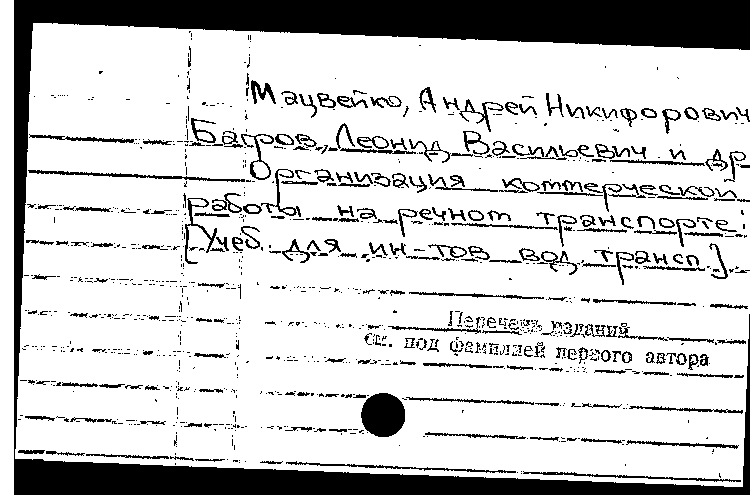 Мацвейко, Андрей Никифорович
Багров, Леонид Васильевич и др
Организация коммерческой
работы на речном транспорте:
[Учеб. для ин-тов вод. трансп.].
Перечень изданий
см. под фамилией первого автора